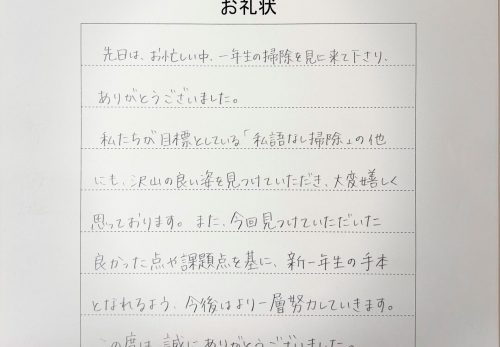 お礼状
先日は、お忙しい中、一年生の掃除を見に来て下さり、
ありがとうございました。
私たちが目標としている「私語なし掃除」の他
にも、沢山の良い姿を見つけていただき、大変嬉しく
思っております。また、今回見つけていただいた
良かった点や課題点を基に、新一年生の手本
となれるよう、今後はより一層努力していきます。
この度は、誠にありがとうございました。